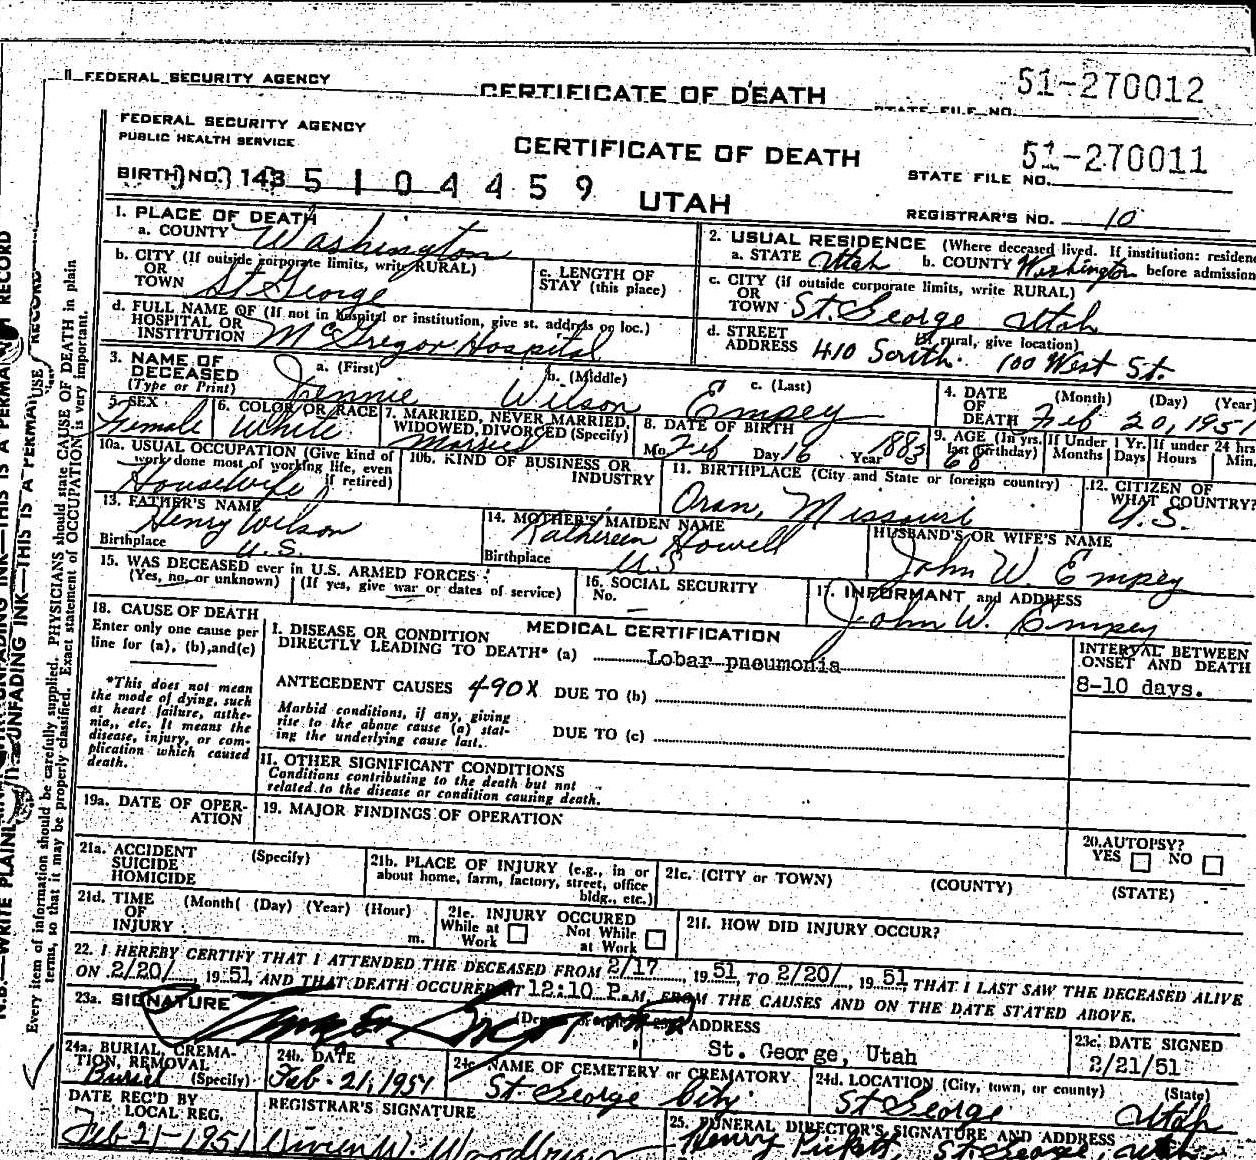 FEDERAL SECURITY AGENCY
CERTIFICATE OF DEATH
STATE FILE NO. 51-270012
FEDERAL SECURITY AGENCY
PUBLIC HEALTH SERVICE
CERTIFICATE OF DEATH
STATE FILE NO. 51-270011
BIRTH NO. 143 5104459
UTAH
REGISTRAR'S NO. 10
1. PLACE OF DEATH
a. COUNTY Washington
b. CITY (If outside corporate limits, write RURAL)
OR
TOWN St George
c. LENGTH OF
STAY (this place)
d. FULL NAME OF (If not in hospital or institution, give st. address or loc.)
HOSPITAL OR
INSTITUTION McGregor Hospital
2. USUAL RESIDENCE (Where deceased lived. If institution: residence
before admission
a. STATE Utah b. COUNTY Washington
c. CITY (if outside corporate limits, write RURAL)
OR
TOWN St. George Utah
d. STREET (If rural, give location)
ADDRESS 410 South 100 West St.
3. NAME OF
DECEASED
(Type or Print)
a. (First) Jennie
b. (Middle) Wilson
c. (Last) Empey
4. DATE
OF
DEATH (Month) (Day) (Year)
Feb 20, 1951
5. SEX
Female
6. COLOR OR RACE
White
7. MARRIED, NEVER MARRIED,
WIDOWED, DIVORCED (Specify)
Married
8. DATE OF BIRTH
Mo. Feb Day 16 Year 1883
9. AGE (In yrs.
last birthday)
68
If Under 1 Yr.
Months Days
If under 24 hrs
Hours Min.
10a. USUAL OCCUPATION (Give kind of
work done most of working life, even
if retired)
Housewife
10b. KIND OF BUSINESS OR
INDUSTRY
11. BIRTHPLACE (City and State or foreign country)
Oran, Missouri
12. CITIZEN OF
WHAT COUNTRY?
U.S.
13. FATHER'S NAME
Henry Wilson
Birthplace U.S.
14. MOTHER'S MAIDEN NAME
Kathereen Howell
Birthplace U.S
HUSBAND'S OR WIFE'S NAME
John W. Empey
15. WAS DECEASED ever in U.S. ARMED FORCES
(Yes, no, or unknown) (If yes, give war or dates of service)
16. SOCIAL SECURITY
No. –
17. INFORMANT and ADDRESS
John W. Empey
18. CAUSE OF DEATH
Enter only one cause per
line for (a), (b), and (c)
*This does not mean
the mode of dying, such
as heart failure, asthe-
nia,, etc. It means the
disease, injury, or com-
plication which caused
death.
MEDICAL CERTIFICATION
I. DISEASE OR CONDITION
DIRECTLY LEADING TO DEATH* (a) Lobar pneumonia
ANTECEDENT CAUSES 490X DUE TO (b)
Morbid conditions, if any, giving
rise to the above cause (a) stat-
ing the underlying cause last.
DUE TO (c)
II. OTHER SIGNIFICANT CONDITIONS
Conditions contributing to the death but not
related to the disease or condition causing death.
INTERVAL BETWEEN
ONSET AND DEATH
8-10 days.
19a. DATE OF OPER-
ATION
19. MAJOR FINDINGS OF OPERATION
20. AUTOPSY?
YES NO
21a. ACCIDENT (Specify)
SUICIDE
HOMICIDE
21b. PLACE OF INJURY (e.g., in or
about home, farm, factory, street, office
bldg., etc.)
21c. (CITY or TOWN) (COUNTY) (STATE)
21d. TIME (Month( (Day) (Year) (Hour)
OF
INJURY m.
21e. INJURY OCCURED
While at Work Not While at Work
21f. HOW DID INJURY OCCUR?
22. I HEREBY CERTIFY THAT I ATTENDED THE DECEASED FROM 2/17, 1951 TO 2/20/, 1951 THAT I LAST SAW THE DECEASED ALIVE
ON 2/20/ 1951, AND THAT DEATH OCCURED AT 12:10 P.M. FROM THE CAUSES AND ON THE DATE STATED ABOVE.
23a. SIGNATURE
ADDRESS
St. George, Utah
23c. DATE SIGNED
2/21/51
24a. BURIAL, CREMA-
TION, REMOVAL
(Specify)
Burial
24b. DATE
Feb. 21, 1951
24c. NAME OF CEMETERY or CREMATORY
St George City
24d. LOCATION (City, town, or county) (State)
St George Utah
DATE REC'D BY
LOCAL REG.
Feb 21-1951
REGISTRAR'S SIGNATURE
25. FUNERAL DIRECTOR'S SIGNATURE AND ADDRESS
Henry Pickett, St. George, Utah
N.B.—WRITE PLAINLY UNFADING INK—THIS IS A PERMANENT RECORD
Every item of information should be carefully supplied. PHYSICIANS should state CAUSE OF DEATH in plain
terms, so that it may be properly classified. Exact statement of OCCUPATION is very important.